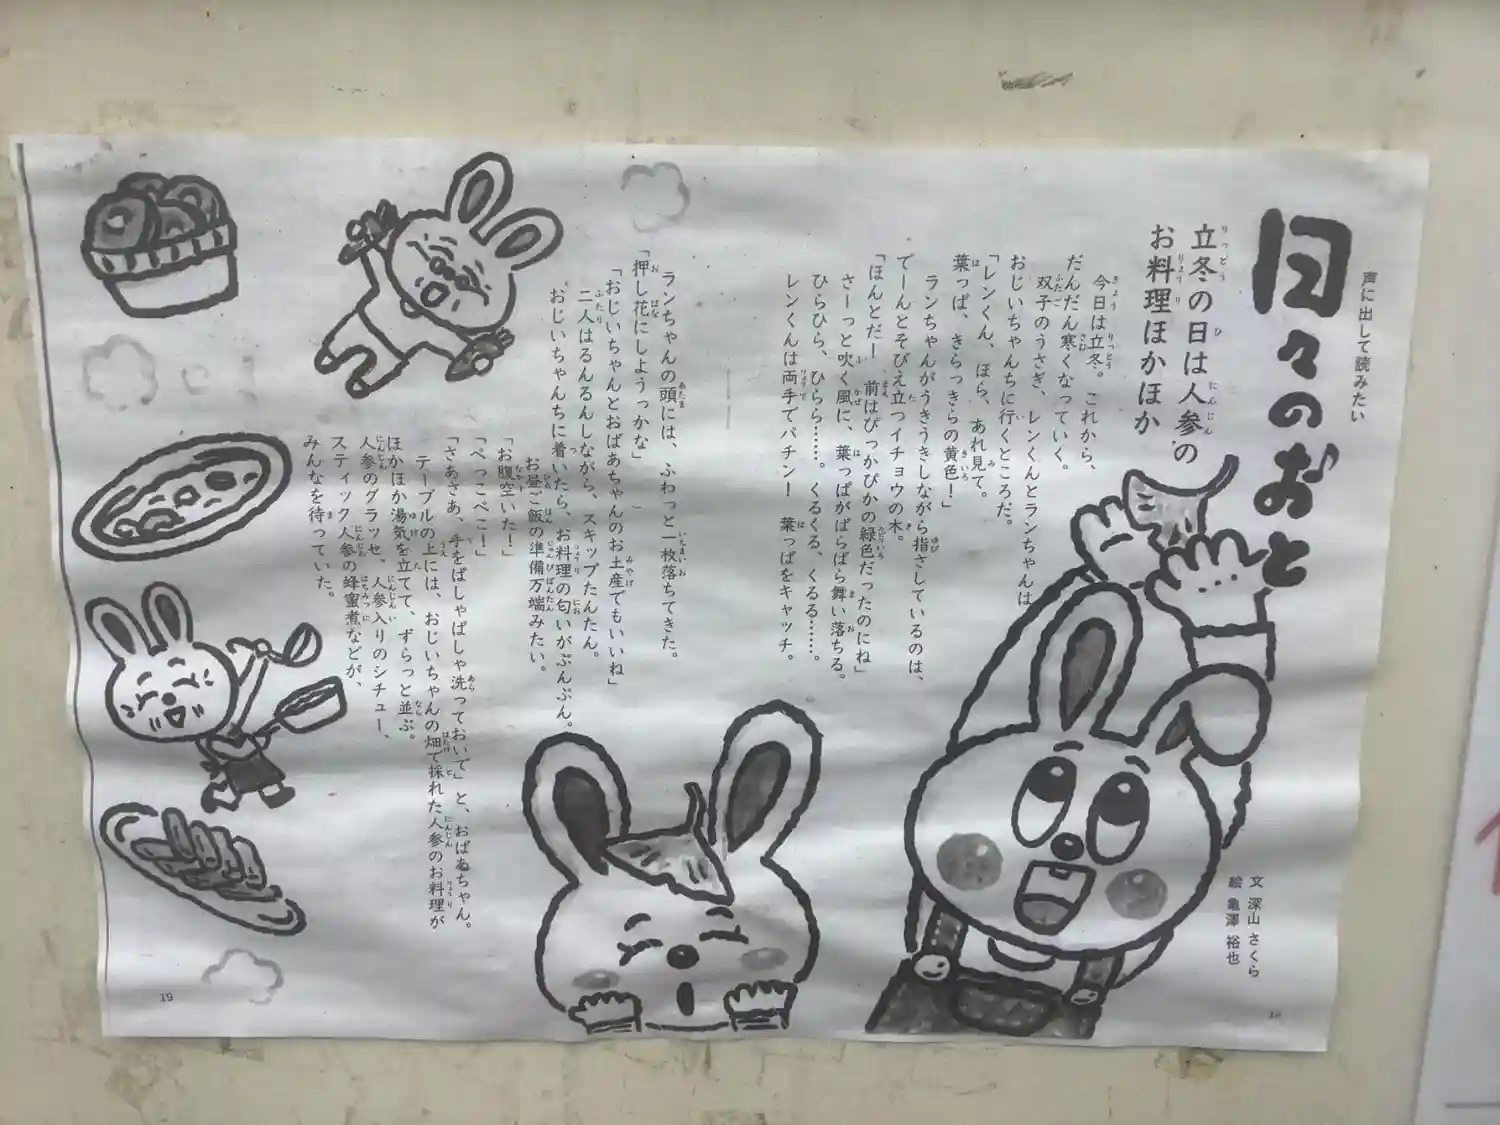 声に出して読みたい
日々のおと
立冬の日は人参の
お料理ほかほか
今日は立冬。これから、
だんだん寒くなっていく。
双子のうさぎ、レンくんとランちゃんは
おじいちゃんちに行くところだ。
「レンくん、ほら、あれ見て。
葉っぱ、きらっきらの黄色！」
ランちゃんがうきうきしながら指さしているのは、
でーんとそびえ立つイチョウの木。
「ほんとだー 前はぴっかぴかの緑色だったのにね」
さーっと吹く風に、葉っぱがぱらぱら舞い落ちる。
ひらひら、ひらら……。くるくる、くるる……。
レンくんは両手でパチン！ 葉っぱをキャッチ。
ランちゃんの頭には、ふわっと一枚落ちてきた。
「押し花にしようっかな」
「おじいちゃんとおばあちゃんのお土産でもいいね」
二人はるんるんしながら、スキップたんたん。
おじいちゃんちに着いたら、お料理の匂いがぷんぷん。
お昼ご飯の準備万端みたい。
「お腹空いた！」
「ぺっこぺこ！」
「さあさあ、手をぱしゃぱしゃ洗っておいで」と、おばあちゃん。
テーブルの上には、おじいちゃんの畑で採れた人参のお料理が
ほかほか湯気を立てて、ずらっと並ぶ。
人参のグラッセ、人参入りのシチュー、
スティック人参の蜂蜜煮などが、
みんなを待っていた。
文 深山 さくら
絵 亀澤 裕也
18
19